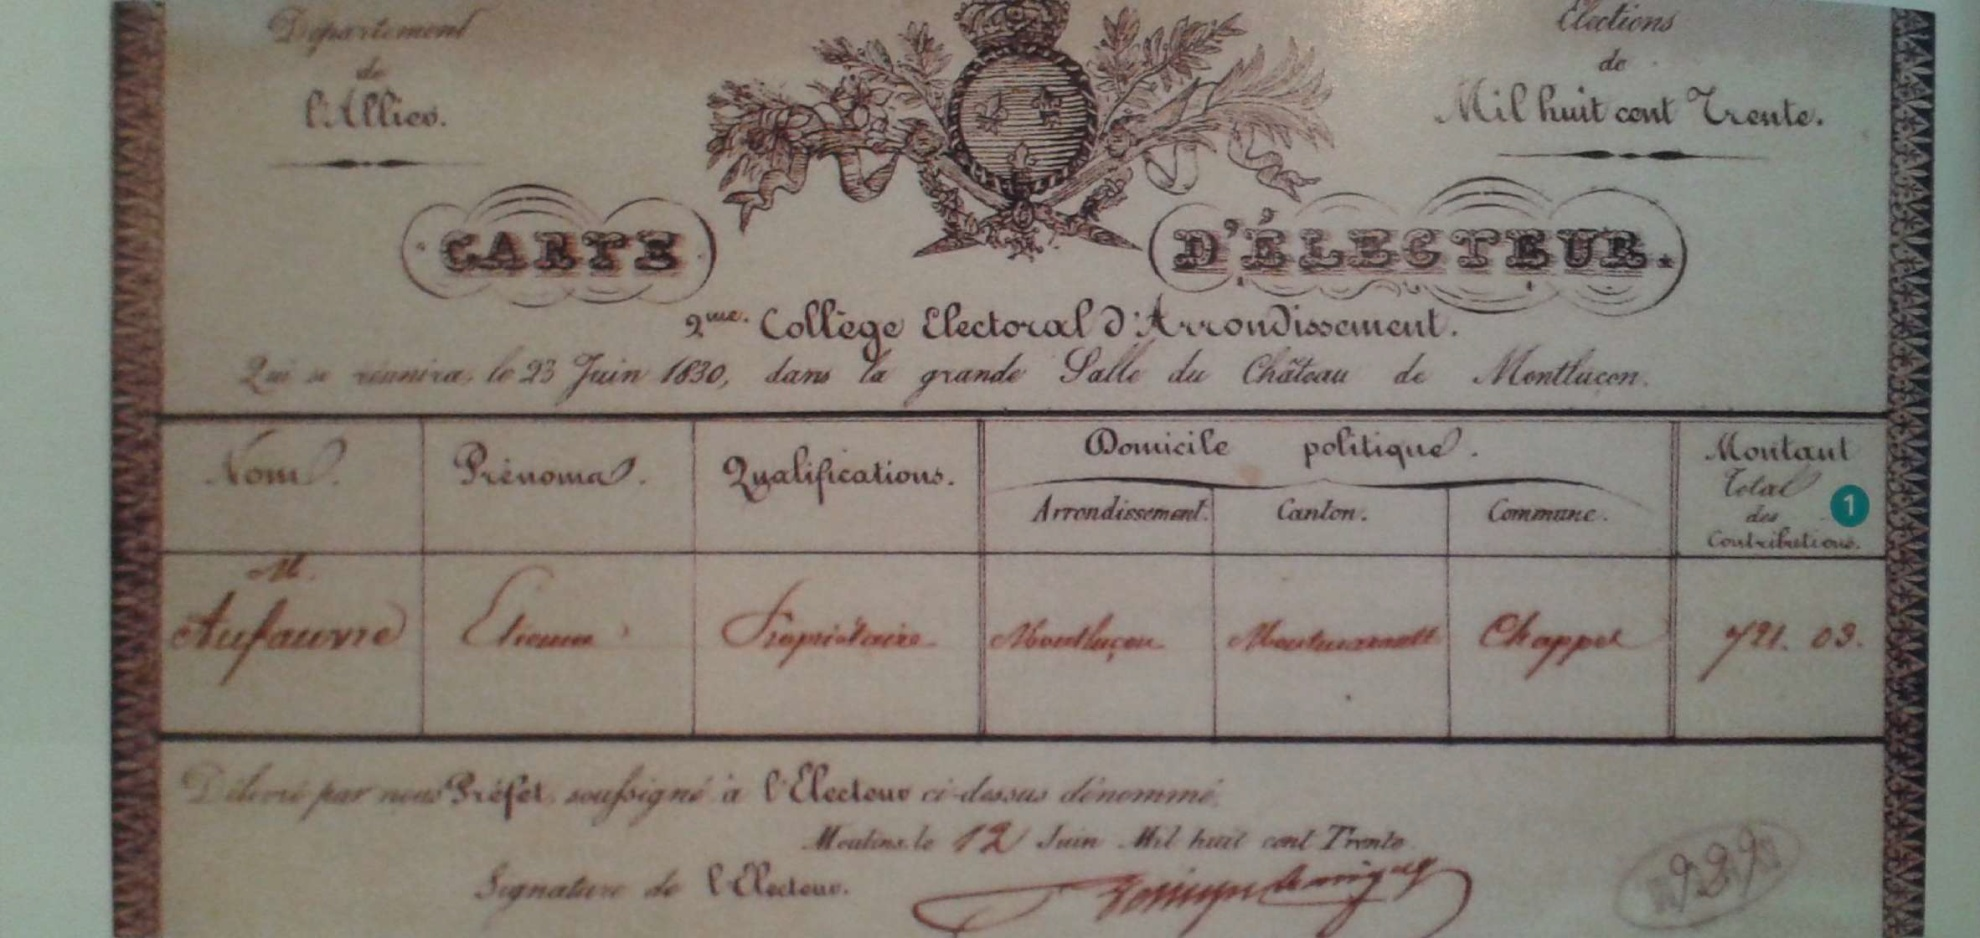 Département
de
l'Allier.
Elections
de
Mil huit cent Trente.
CARTE D'ÉLECTEUR.
2me. Collège Electoral d'Arrondissement.
Qui se réunira, le 23 Juin 1830, dans la grande Salle du Château de Montluçon.
Nom.
Prénoms.
Qualifications.
Domicile politique.
Arrondissement.
Canton.
Commune.
Montant
Total
des
Contributions.
1
M.
Aufauvre
Etienne
Propriétaire
Montluçon
Montmarault
Chappes
721. 03.
Délivré par nous Préfet, soussigné à l'Electeur ci-dessus dénommé,
Moulins, le 12 Juin Mil huit cent Trente
Signature de l'Electeur.